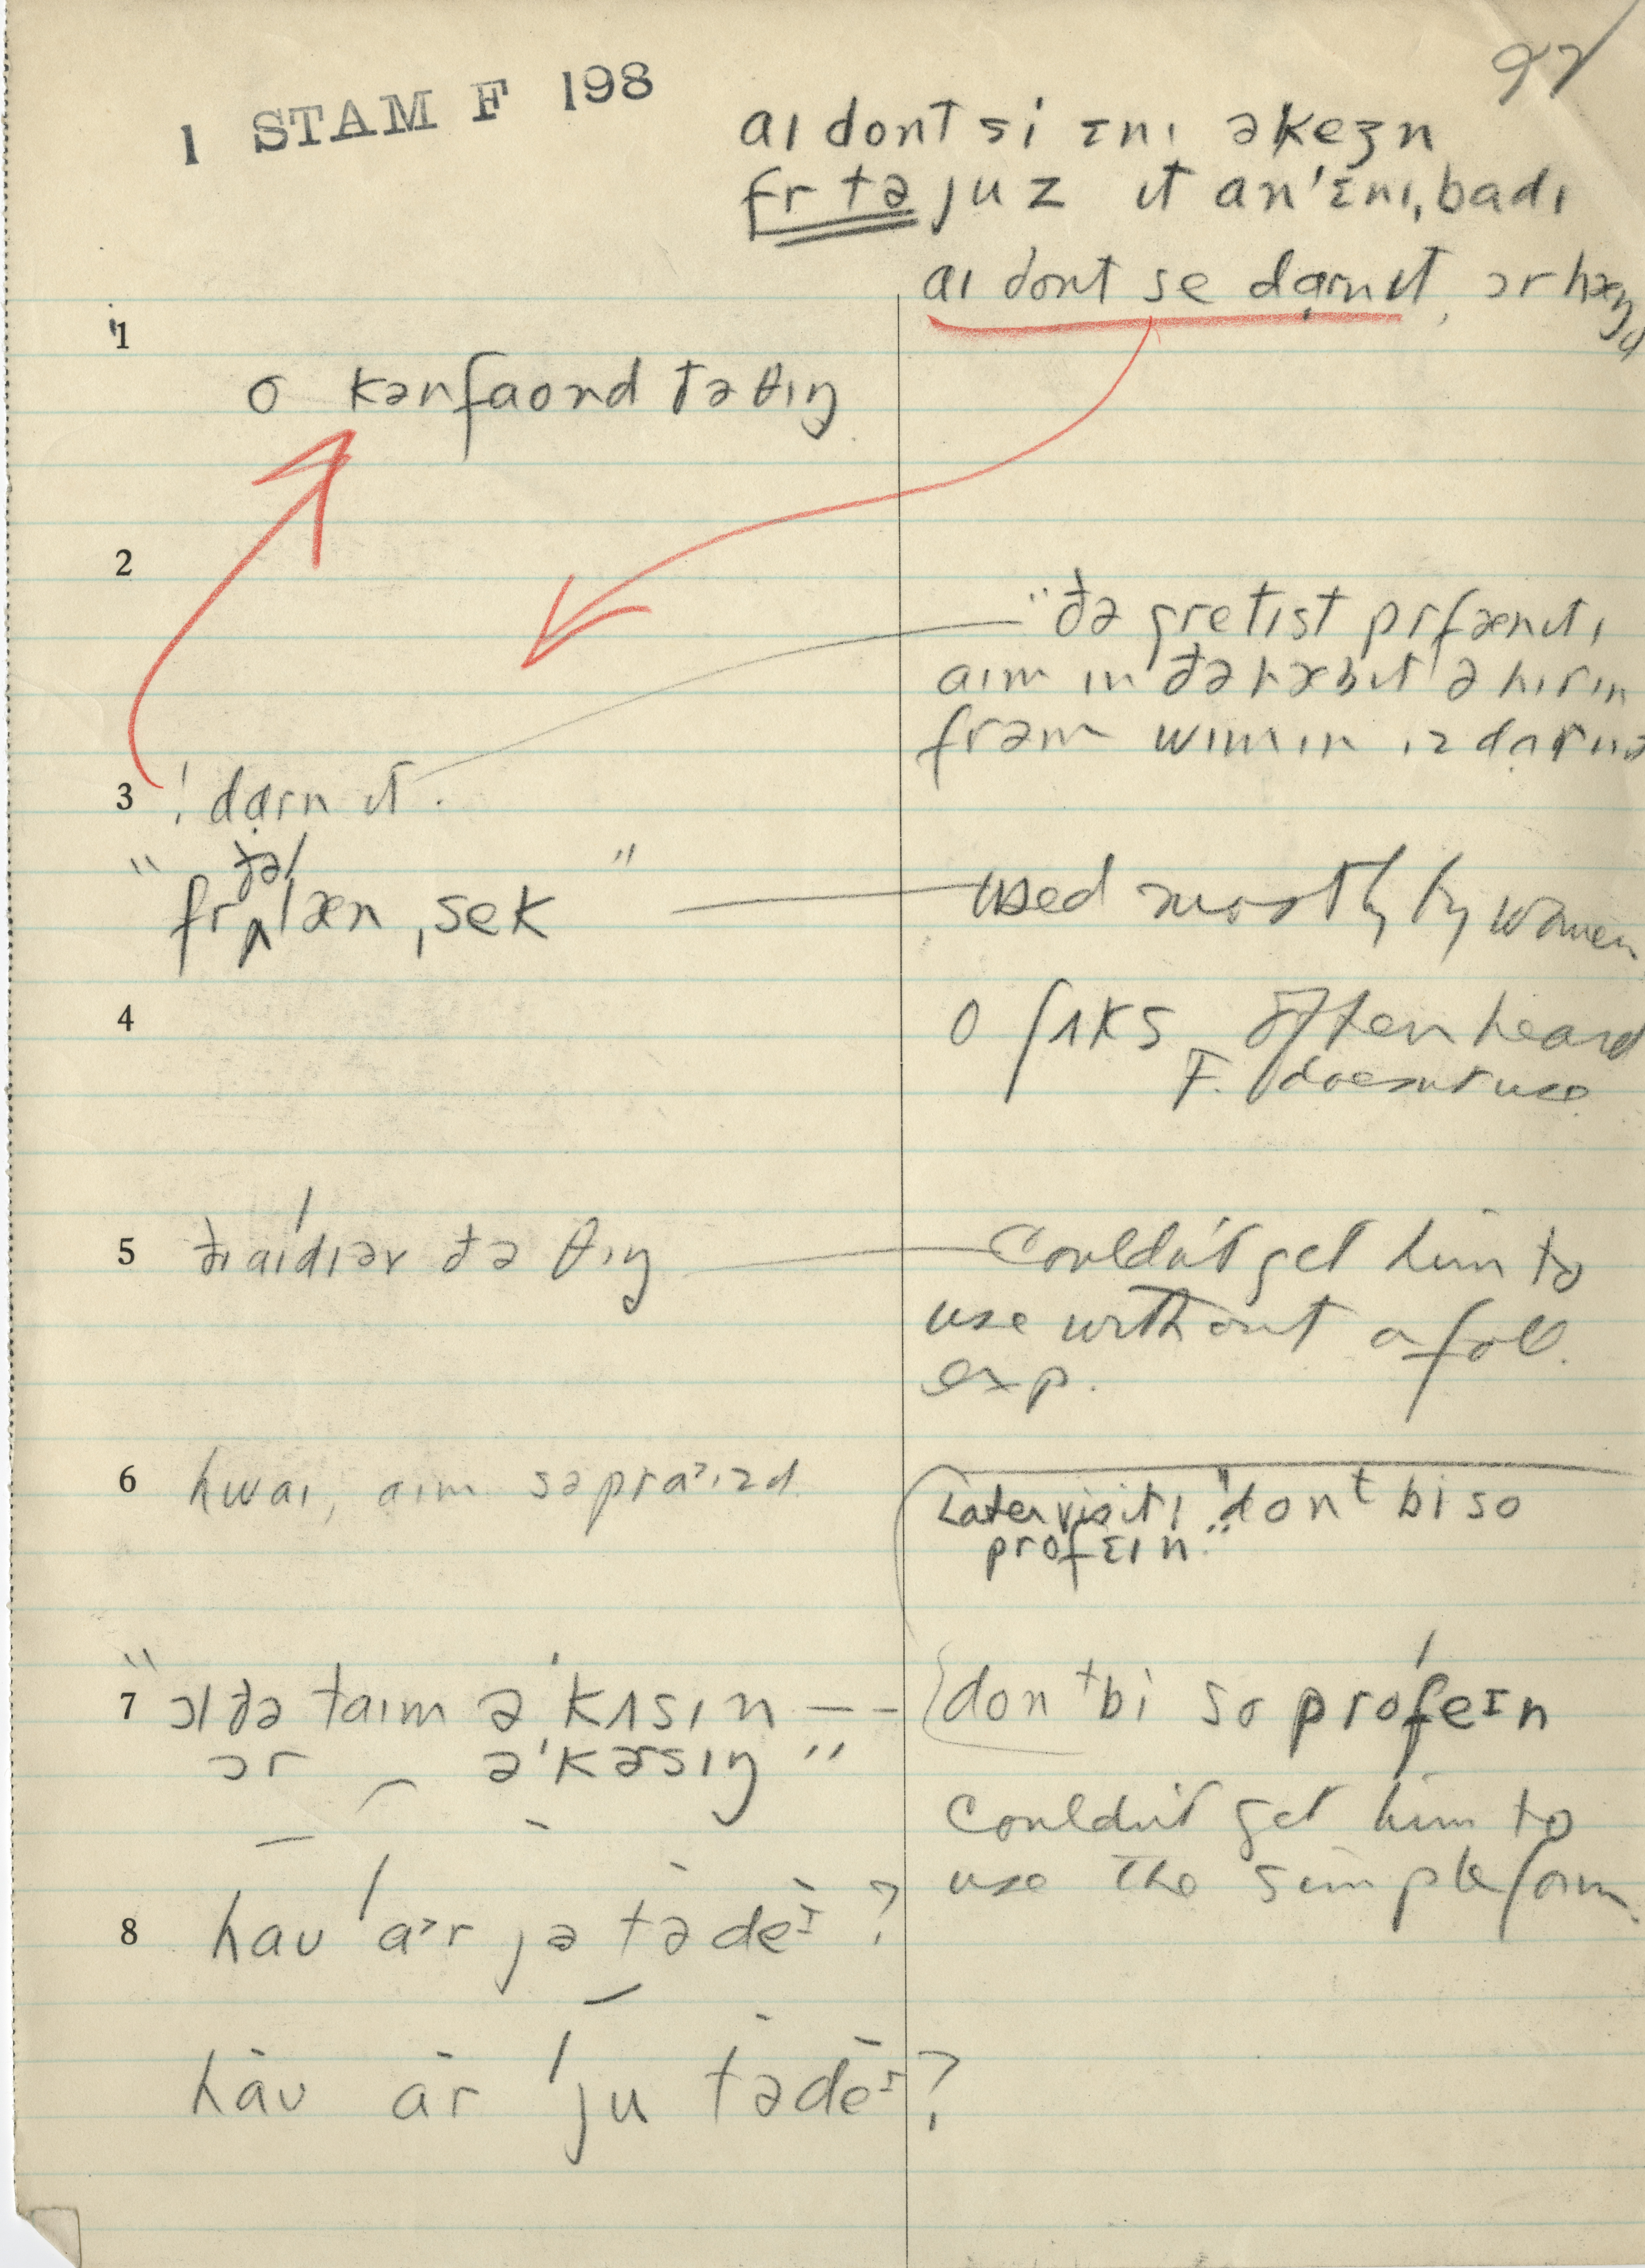 1 STAM F 198
97
aɪ dont si ɛnɪ əkeʒn
fr tə juz ɪt an 'ɛnɪ,badɪ
aɪ dont se dɑrn ɪt, ɔr hæŋ ɪt
1
o kənfaond ðə θɪŋ
2
"ðə gretɪst prfænɪtɪ
aɪm ɪn ðə hæbɪt ə hɪrɪn
frəm wɪmɪn ɪz dɑrn ɪt
3 ! dɑrn ɪt.
"fr ðə læn ,sek" used mostly by women
4
o ʃʌks often heard
F. doesn't use
5 ðɪ aɪdɪər ðə θɪŋ Couldn't get him to
use without a foll.
exp.
6 hwaɪ, aɪm səpraɪzd
Later visit, "dont bi so
profɛɪn."
7 "ɔl ðə taɪm ə'kʌsɪn -- dont bi so profeɪn
ɔr ə'kəsɪŋ"
Couldn't get him to
use the simple form.
8 haʊ ar jə tədeɪ?
haʊ ar ju tədeɪ?